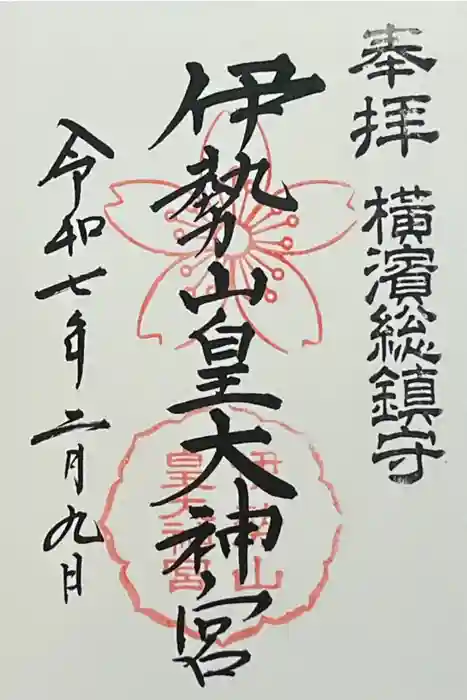 奉拝
横濱総鎮守
伊勢山皇大神宮
伊勢山
皇大神宮
令和七年二月九日